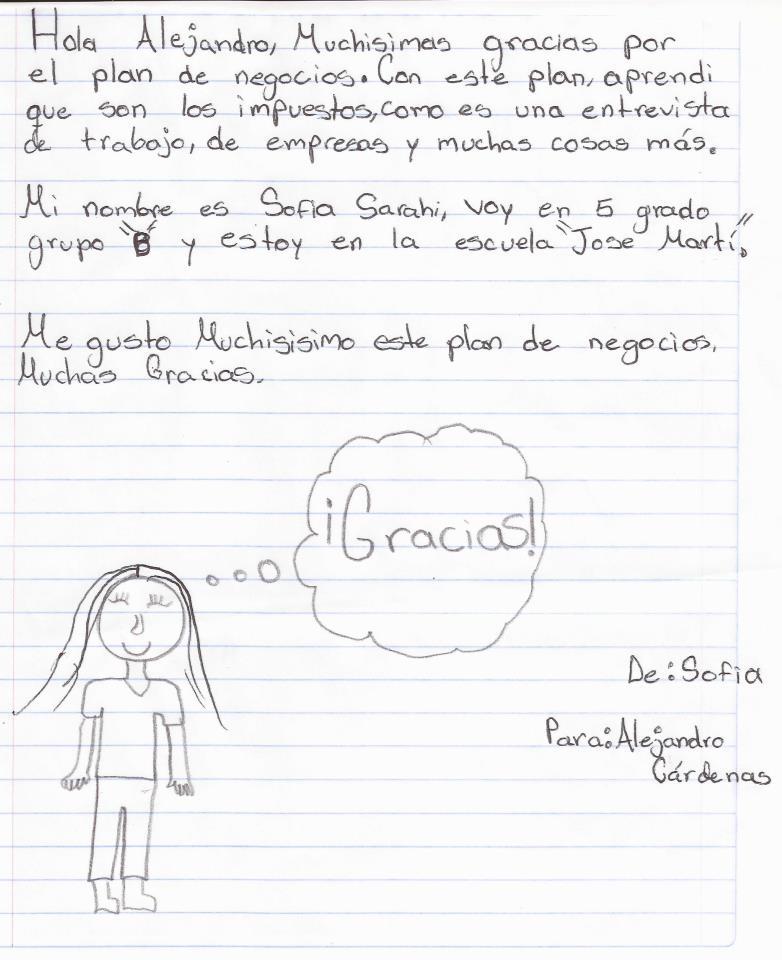 Hola Alejandro, Muchisimas gracias por
el plan de negocios. Con este plan, aprendi
que son los impuestos, como es una entrevista
de trabajo, de empresas y muchas cosas más.
Mi nombre es Sofia Sarahi, voy en 5 grado
grupo "B" y estoy en la escuela "Jose Martí".
Me gusto Muchisisimo este plan de negocios.
Muchas Gracias.
¡Gracias!
De: Sofia
Para: Alejandro
Cárdenas